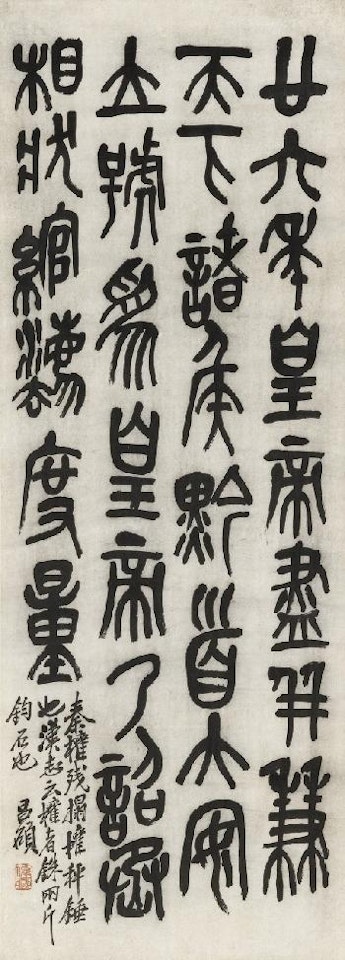 廿六年皇帝盡并兼
天下諸侯黔首大安
立號為皇帝乃詔丞
相狀綰灋度量
秦權残搨權秤錘
也漢志云權者銖兩斤
鈞石也 昌碩